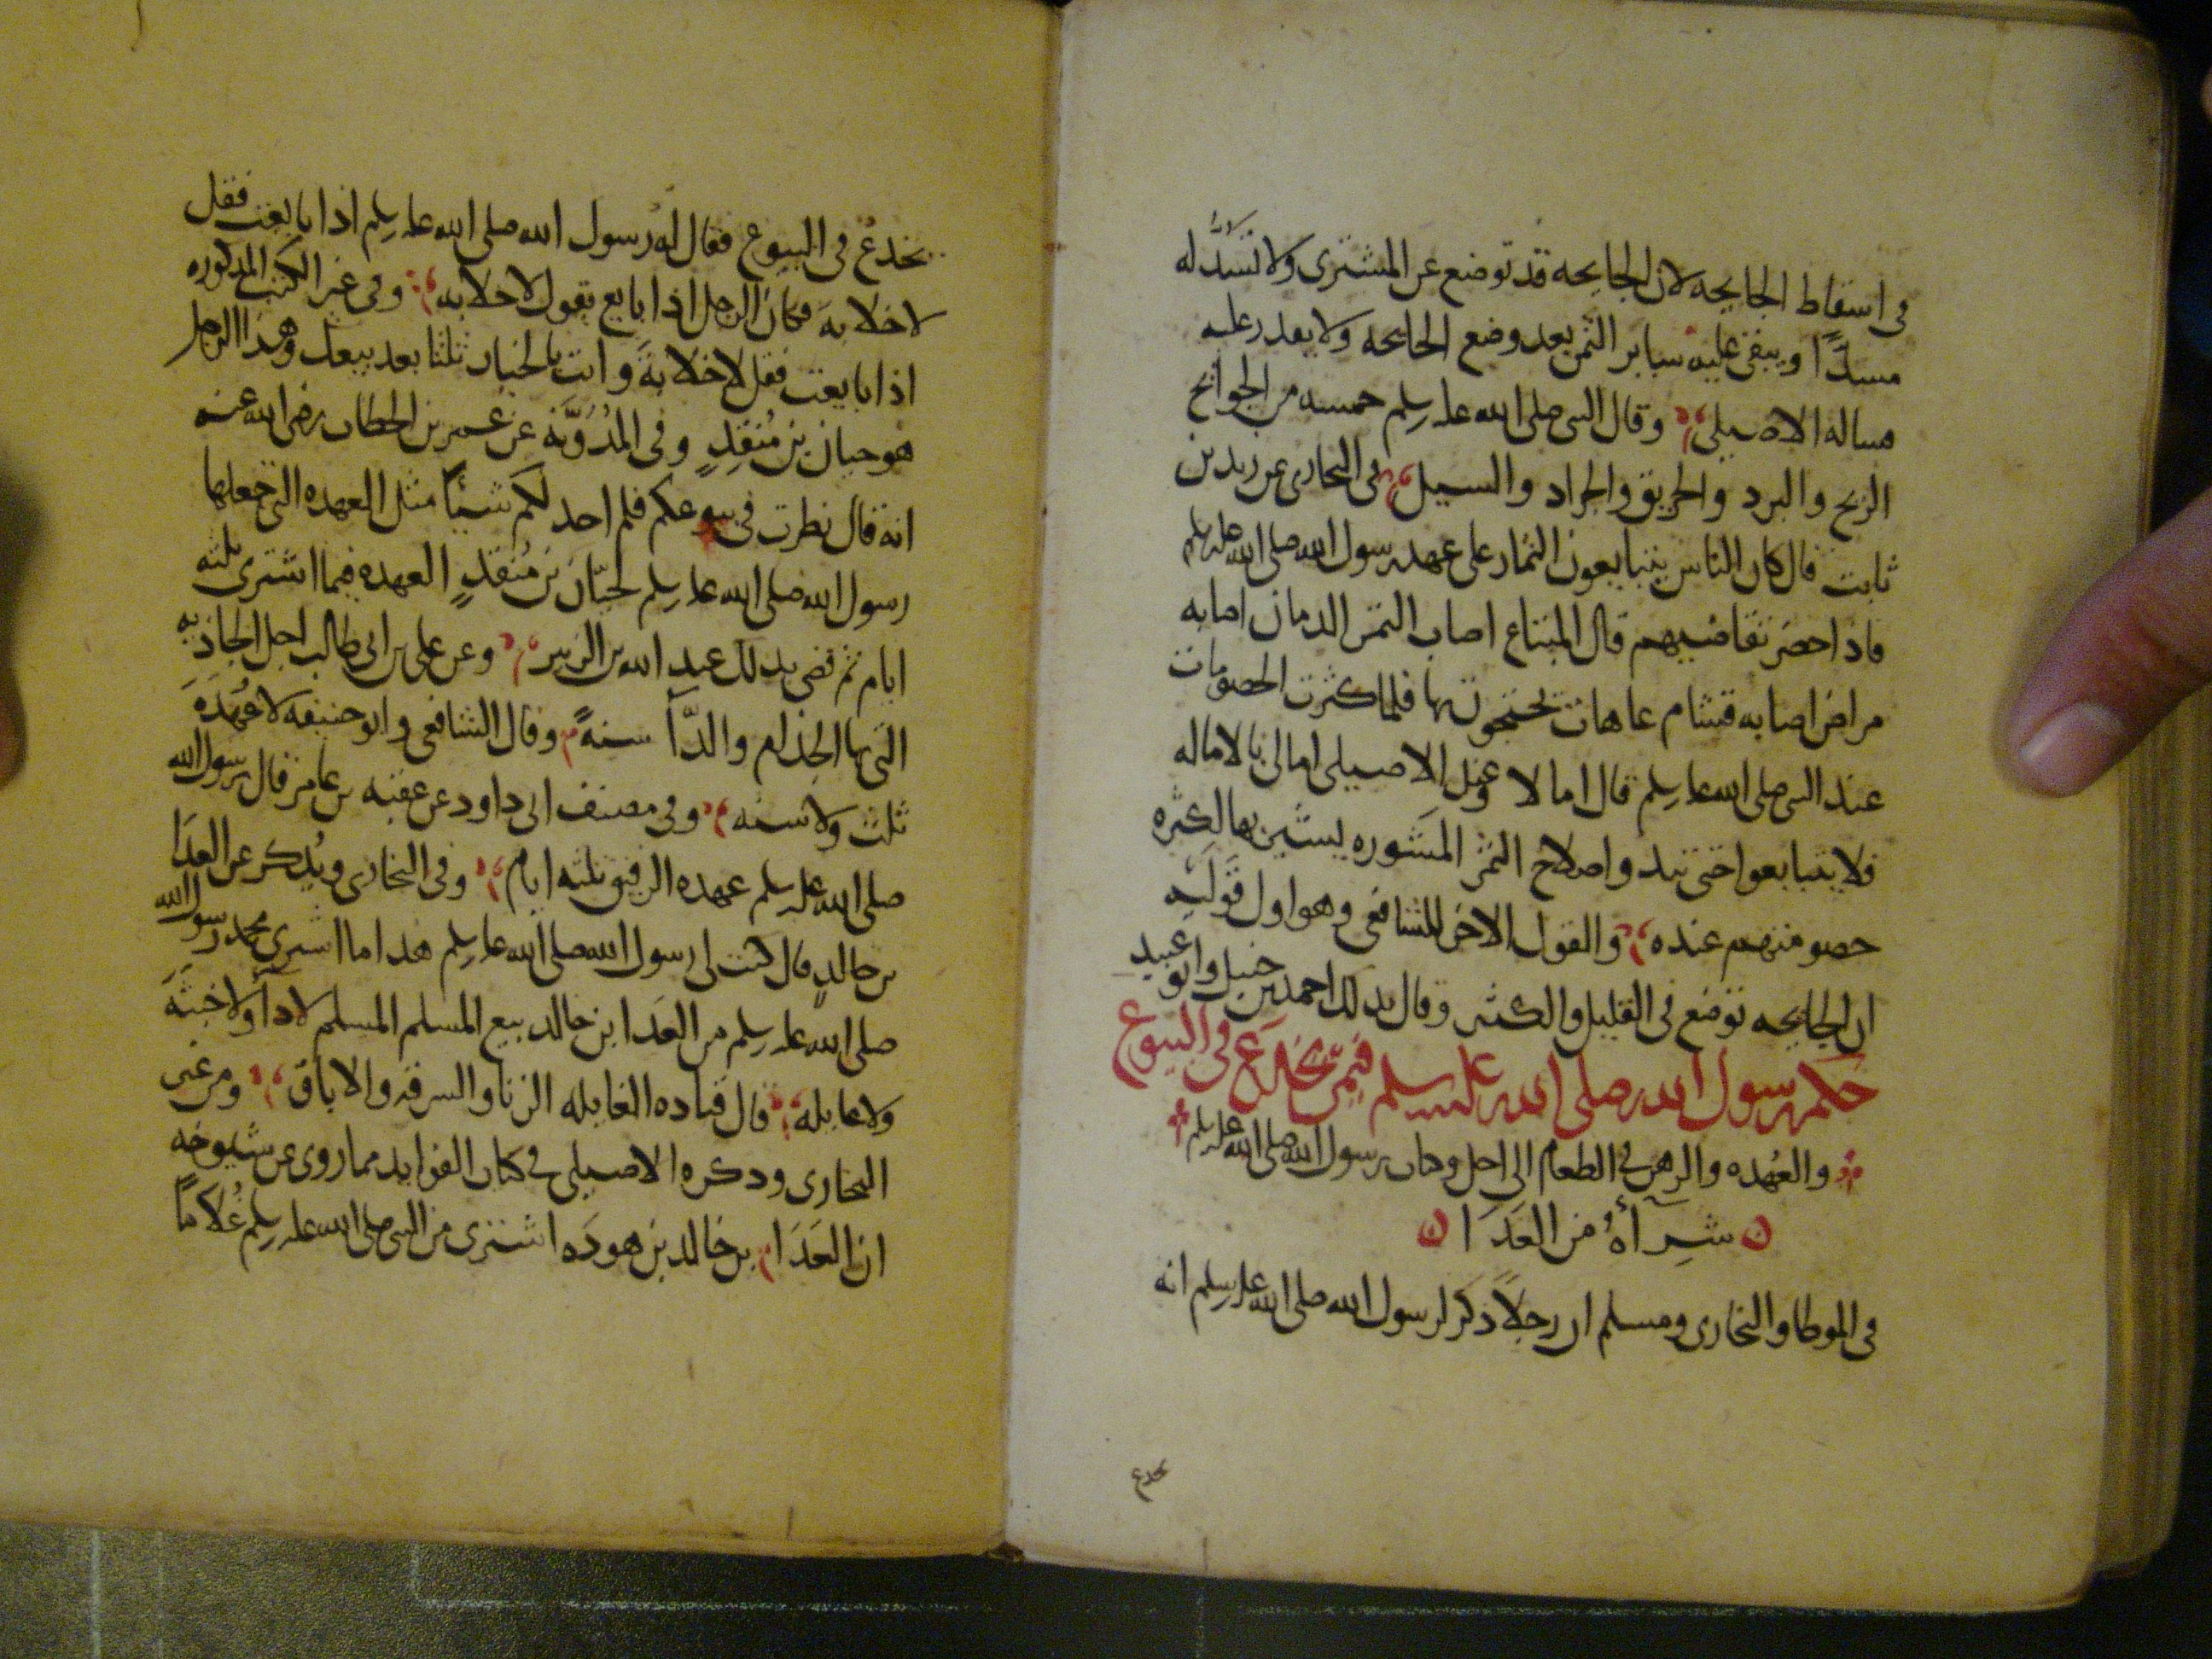 في اسقاط الجايحه لان الجايحه قد توضع عن المشترى ولا تسد له
مسدا ويبقى عليه ساير الثمن بعد وضع الجايحه ولا
مساله الاصيلى وقال النبي صلى الله عليه وسلم خمسه من الجوايح
الريح والبرد والحريق والجراد والسيل في البخارى عن زيد بن
ثابت قال كان الناس يتبايعون الثمار على عهد رسول الله صلى الله عليه وسلم
فاذا حضر تقاضيهم قال المبتاع اصاب الثمر الدمان اصابه
مراض اصابه قشام عاهات يحتجون بها فلما كثرت الخصومات
عند النبي صلى الله عليه وسلم قال اما لا وعند الاصيلى امالى بالاماله
فلا يتبايعوا حتى يبد واصلاح الثمر المشوره يشير بها لكثره
خصومتهم عنده والقول الاخر للشافعى وهو اول قوليه
ان الجايحه توضع في القليل والكثير وقال بذلك احمد بن حنبل وابو عبيد
حكم رسول الله صلى الله عليه وسلم فيمن يخدع في البيوع
والعهده والرهن في الطعام الى اجل وكتاب رسول الله صلى الله عليه وسلم
شرآأه من العدا
في الموطا والبخارى ومسلم ان رجلا ذكر لرسول الله صلى الله عليه وسلم انه
يخدع
يخدع في البيوع فقال له رسول الله صلى الله عليه وسلم اذا بايعت فقل
لا خلابه فكان الرجل اذا بايع يقول لا خلابه وفي غير الكتب المذكوره
اذا بايعت فقل لا خلابة وانت بالخيار ثلثا بعد بيعك وهذا الرجل
هو حبان بن منقذ وفي المدونه عن عمر بن الخطاب رضى الله عنه
انه قال نظرت في بيوعكم فلم اجد لكم شيئا مثل العهده التي جعلها
رسول الله صلى الله عليه وسلم لحبان بن منقذ العهده فيما اشترى ثلثه
ايام ثم قضى بذلك عبد الله بن الزبير وعن على بن ابى طالب اجل الجاريه
التي بها الجذام والدآ سنه وقال الشافعى وابو حنيفه لا عهدة
ثلث ولا سنه وفي مصنف ابى داود عن عقبه بن عامر قال رسول الله
صلى الله عليه وسلم عهده الرقيق ثلثه ايام وفي البخارى ويذكر عن العدا
بن خالد قال كتب لى رسول الله صلى الله عليه وسلم هذا ما اشترى محمد رسول الله
صلى الله عليه وسلم من العدا بن خالد بيع المسلم المسلم لا دآ ولا خبثة
ولا غايله قال قتاده الغايله الزنا والسرقه والاباق ومن غير
البخارى وذكره الاصيلى في كتاب الفوايد مما روى عن شيوخه
ان العدا بن خالد بن هوده اشترى من النبي صلى الله عليه وسلم غلاما